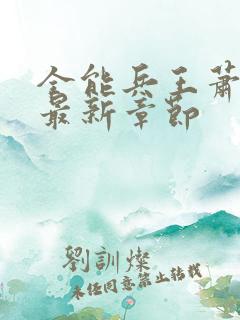 全能兵王蕭
最新章節
劉訓燦
未经同意禁止转载